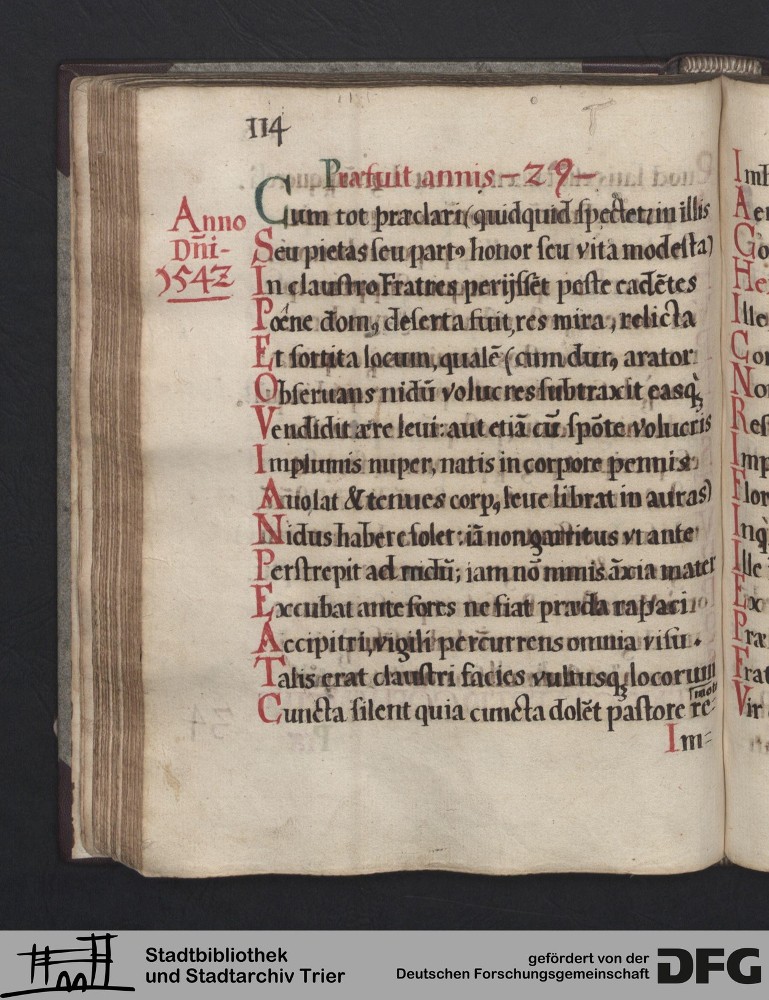 114
Præfuit annis – 29 –
Anno
Dñi-
1542
Cum tot præclari (quidquid spectetur in illis
Seu pietas seu partꝰ honor seu vita modesta)
In claustro Fratres perijssēt peste cadētes
Poene domꝰ deserta fuit, res mira, relicta
Et sortita locum, qualē (cum durꝰ arator
Obseruans nidū volucres subtraxit easqꝫ
Vendidit ære leui: aut etiā cū spōte volucris
Implumis nuper, natis in corpore pennis
Auolat & tenues corpꝰ leue librat in auras)
Nidus habere solet: iā non garritus vt ante
Perstrepit ad nidū; iam nō nimis āxia mater
Excubat ante fores ne fiat præda rapaci
Accipitri, vigili percurrens omnia visu.
Talis erat claustri facies vultusqꝫ locorum
Cuncta silent quia cuncta dolēt pastore re-
moto
Im=
Imb
A
Go
He
Ille
Con
No
Res
Imp
Flor
Inq
Ille
Ex
Præ
Frat
Vir
Stadtbibliothek
und Stadtarchiv Trier
gefördert von der
Deutschen Forschungsgemeinschaft
DFG